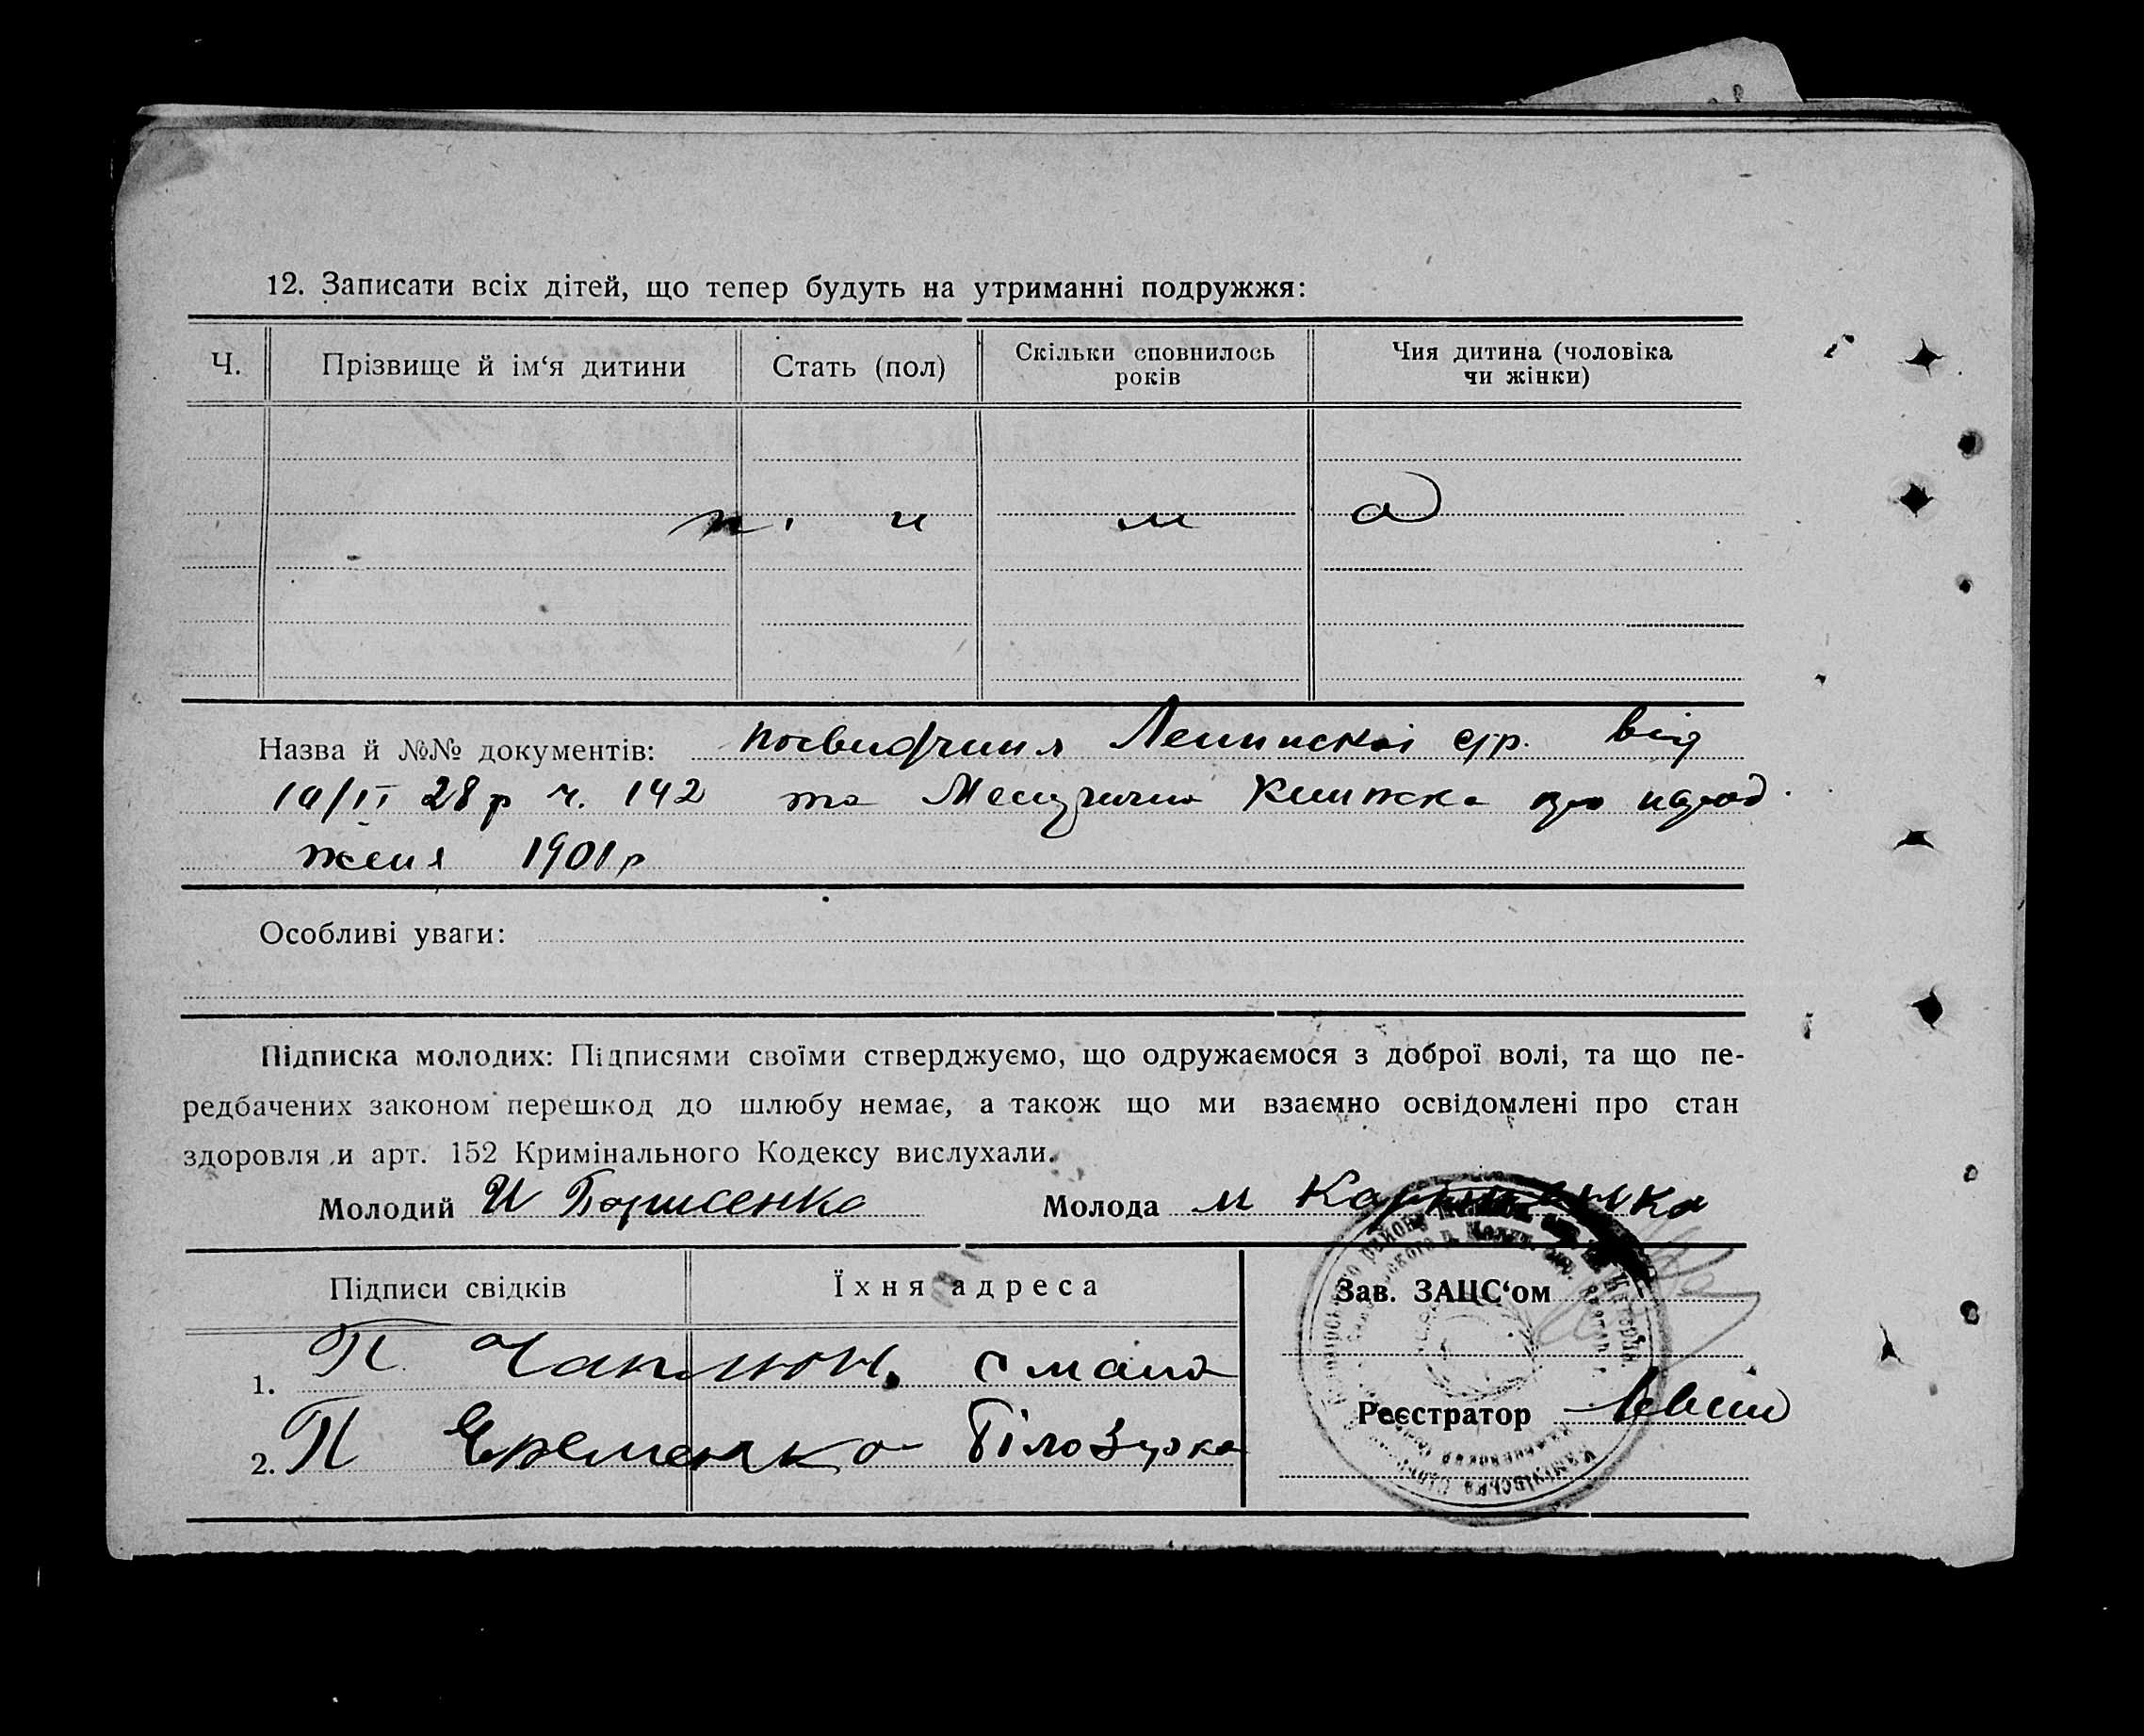 12. Записати всіх дітей, що тепер будуть на утриманні подружжя:
Ч. Прізвище й ім‘я дитини Стать (пол) Скільки сповнилось років Чия дитина (чоловіка чи жінки)
н і и м а
Назва й №№ документів: посвидчиня Ленинскої с/р. від
10/II 28 р ч. 142 та книжка про народ
женя 1901 р
Особливі уваги:
Підписка молодих: Підписями своїми стверджуємо, що одружаємося з доброї волі, та що пе-
редбачених законом перешкод до шлюбу немає, а також що ми взаємно освідомлені про стан
здоровля и арт. 152 Кримінального Кодексу вислухали.
Молодий И Борисенко Молода М
Підписи свідків Їхня адреса Зав. ЗАЦС‘ом
1. П Чаплюн.
Реєстратор
2. П Яременко Білозурка